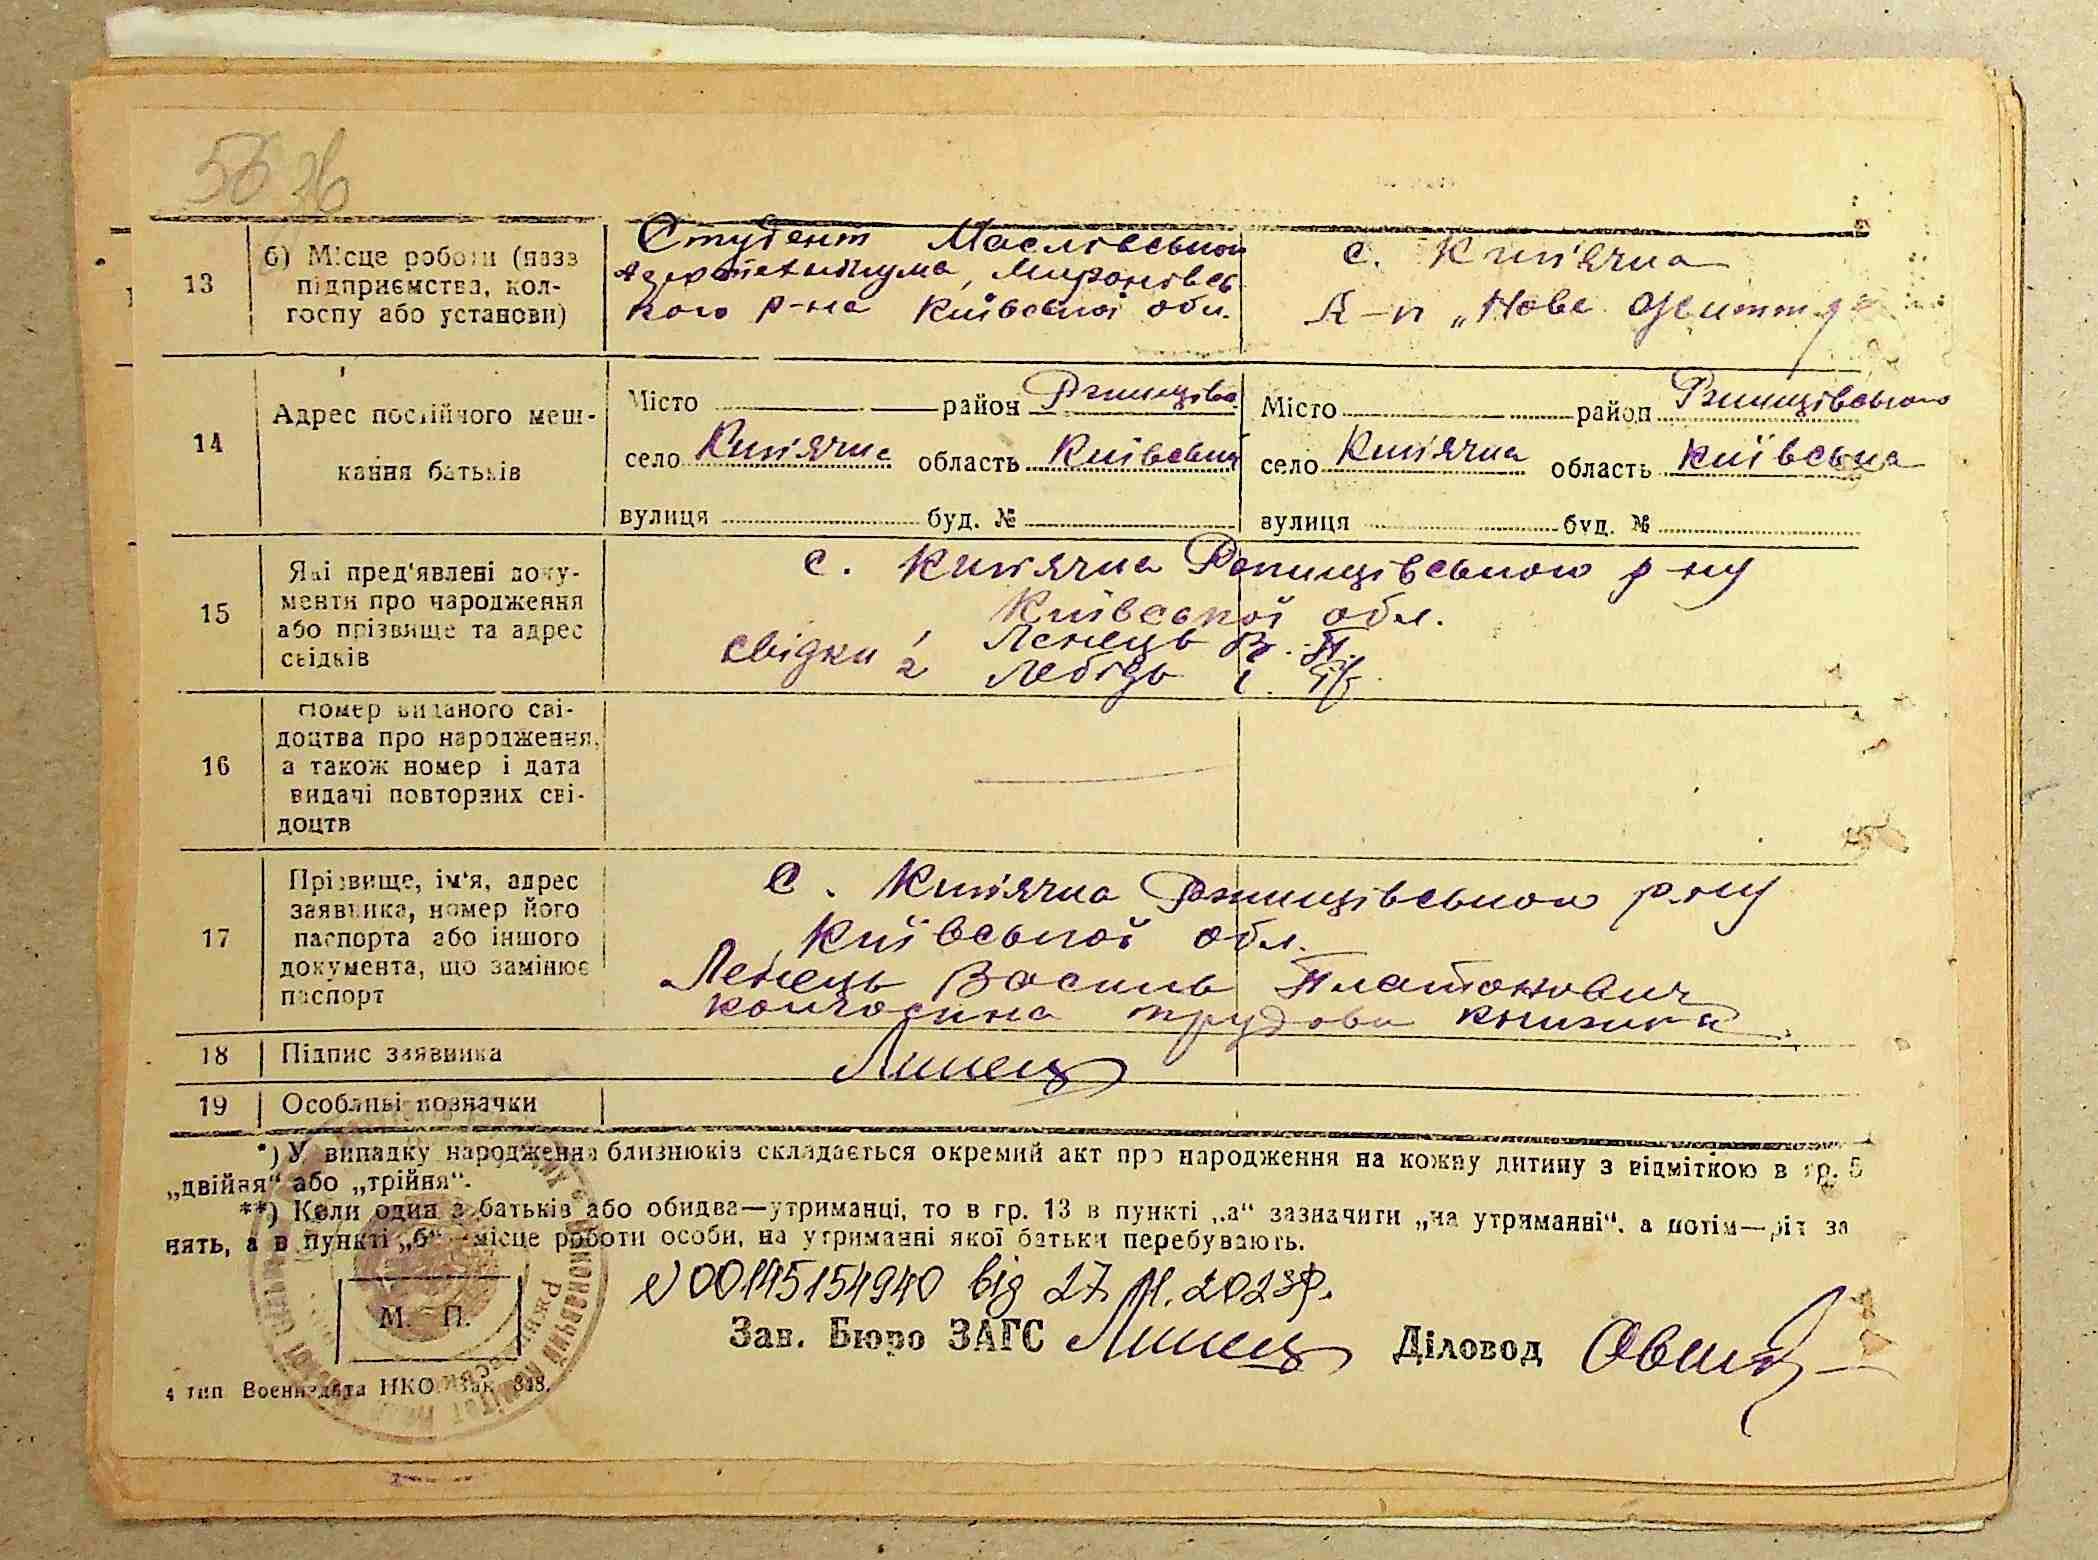 56 зв
13
б) Місце роботи (назва
підприємства, кол-
госпу або установи)
Студент Маслівського
агротехнікума, Миронівсь
кого р-на Київської обл.
с. Кип'ячка
к-п „Нове життя"
14
Адрес постійного меш-
кання батьків
Місто район Ржищівс
село Кип'ячка область Київська
вулиця буд. №
Місто район Ржищівського
село Кип'ячка область Київська
вулиця буд. №
15
Які пред'явлені доку-
менти про народження
або прізвище та адрес
свідків
с. Кип'ячка Ржищівського р-ну
Київської обл.
свідки 1 Ленець В. П.
2 Лебідь І.
16
Номер виданого сві-
доцтва про народження,
а також номер і дата
видачі повторних сві-
доцтв
17
Прізвище, ім'я, адрес
заявника, номер його
паспорта або іншого
документа, що замінює
паспорт
С. Кип'ячка Ржищівського р-ну
Київської обл.
Ленець Василь Платонович
колгоспна трудова книжка
18 Підпис заявника
Линець
19 Особливі позначки
*) У випадку народження близнюків складається окремий акт про народження на кожну дитину з відміткою в гр. 5
„двійня“ або „трійня“.
**) Коли один з батьків або обидва—утриманці, то в гр. 13 в пункті „а“ зазначити „на утриманні“, а потім—ріт за
нять, а в пункті „б“—місце роботи особи, на утриманні якої батьки перебувають.
N00145154940 від 27.11.2023р.
М. П.
Зав. Бюро ЗАГС Линець Діловод
4 тип Воениздата НКО. Зак. 848.